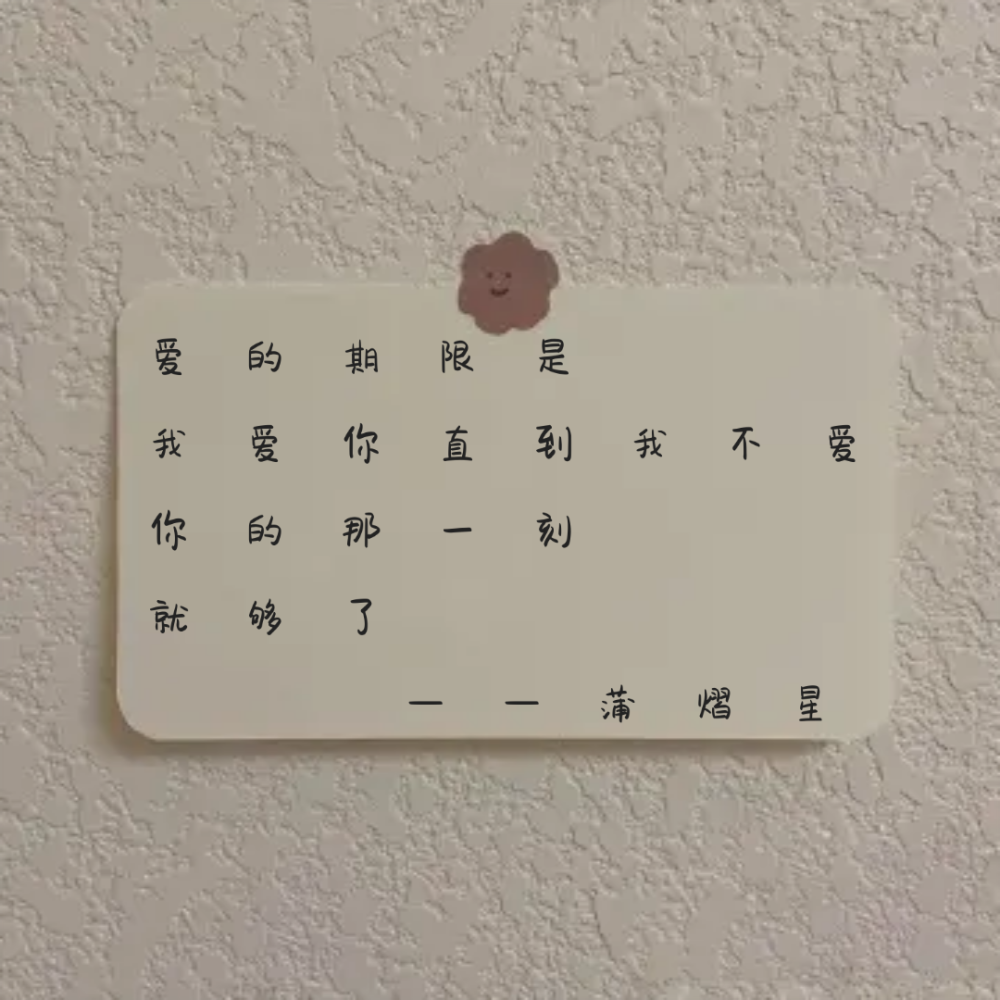 爱的期限是
我爱你直到我不爱
你的那一刻
就够了
——蒲熠星